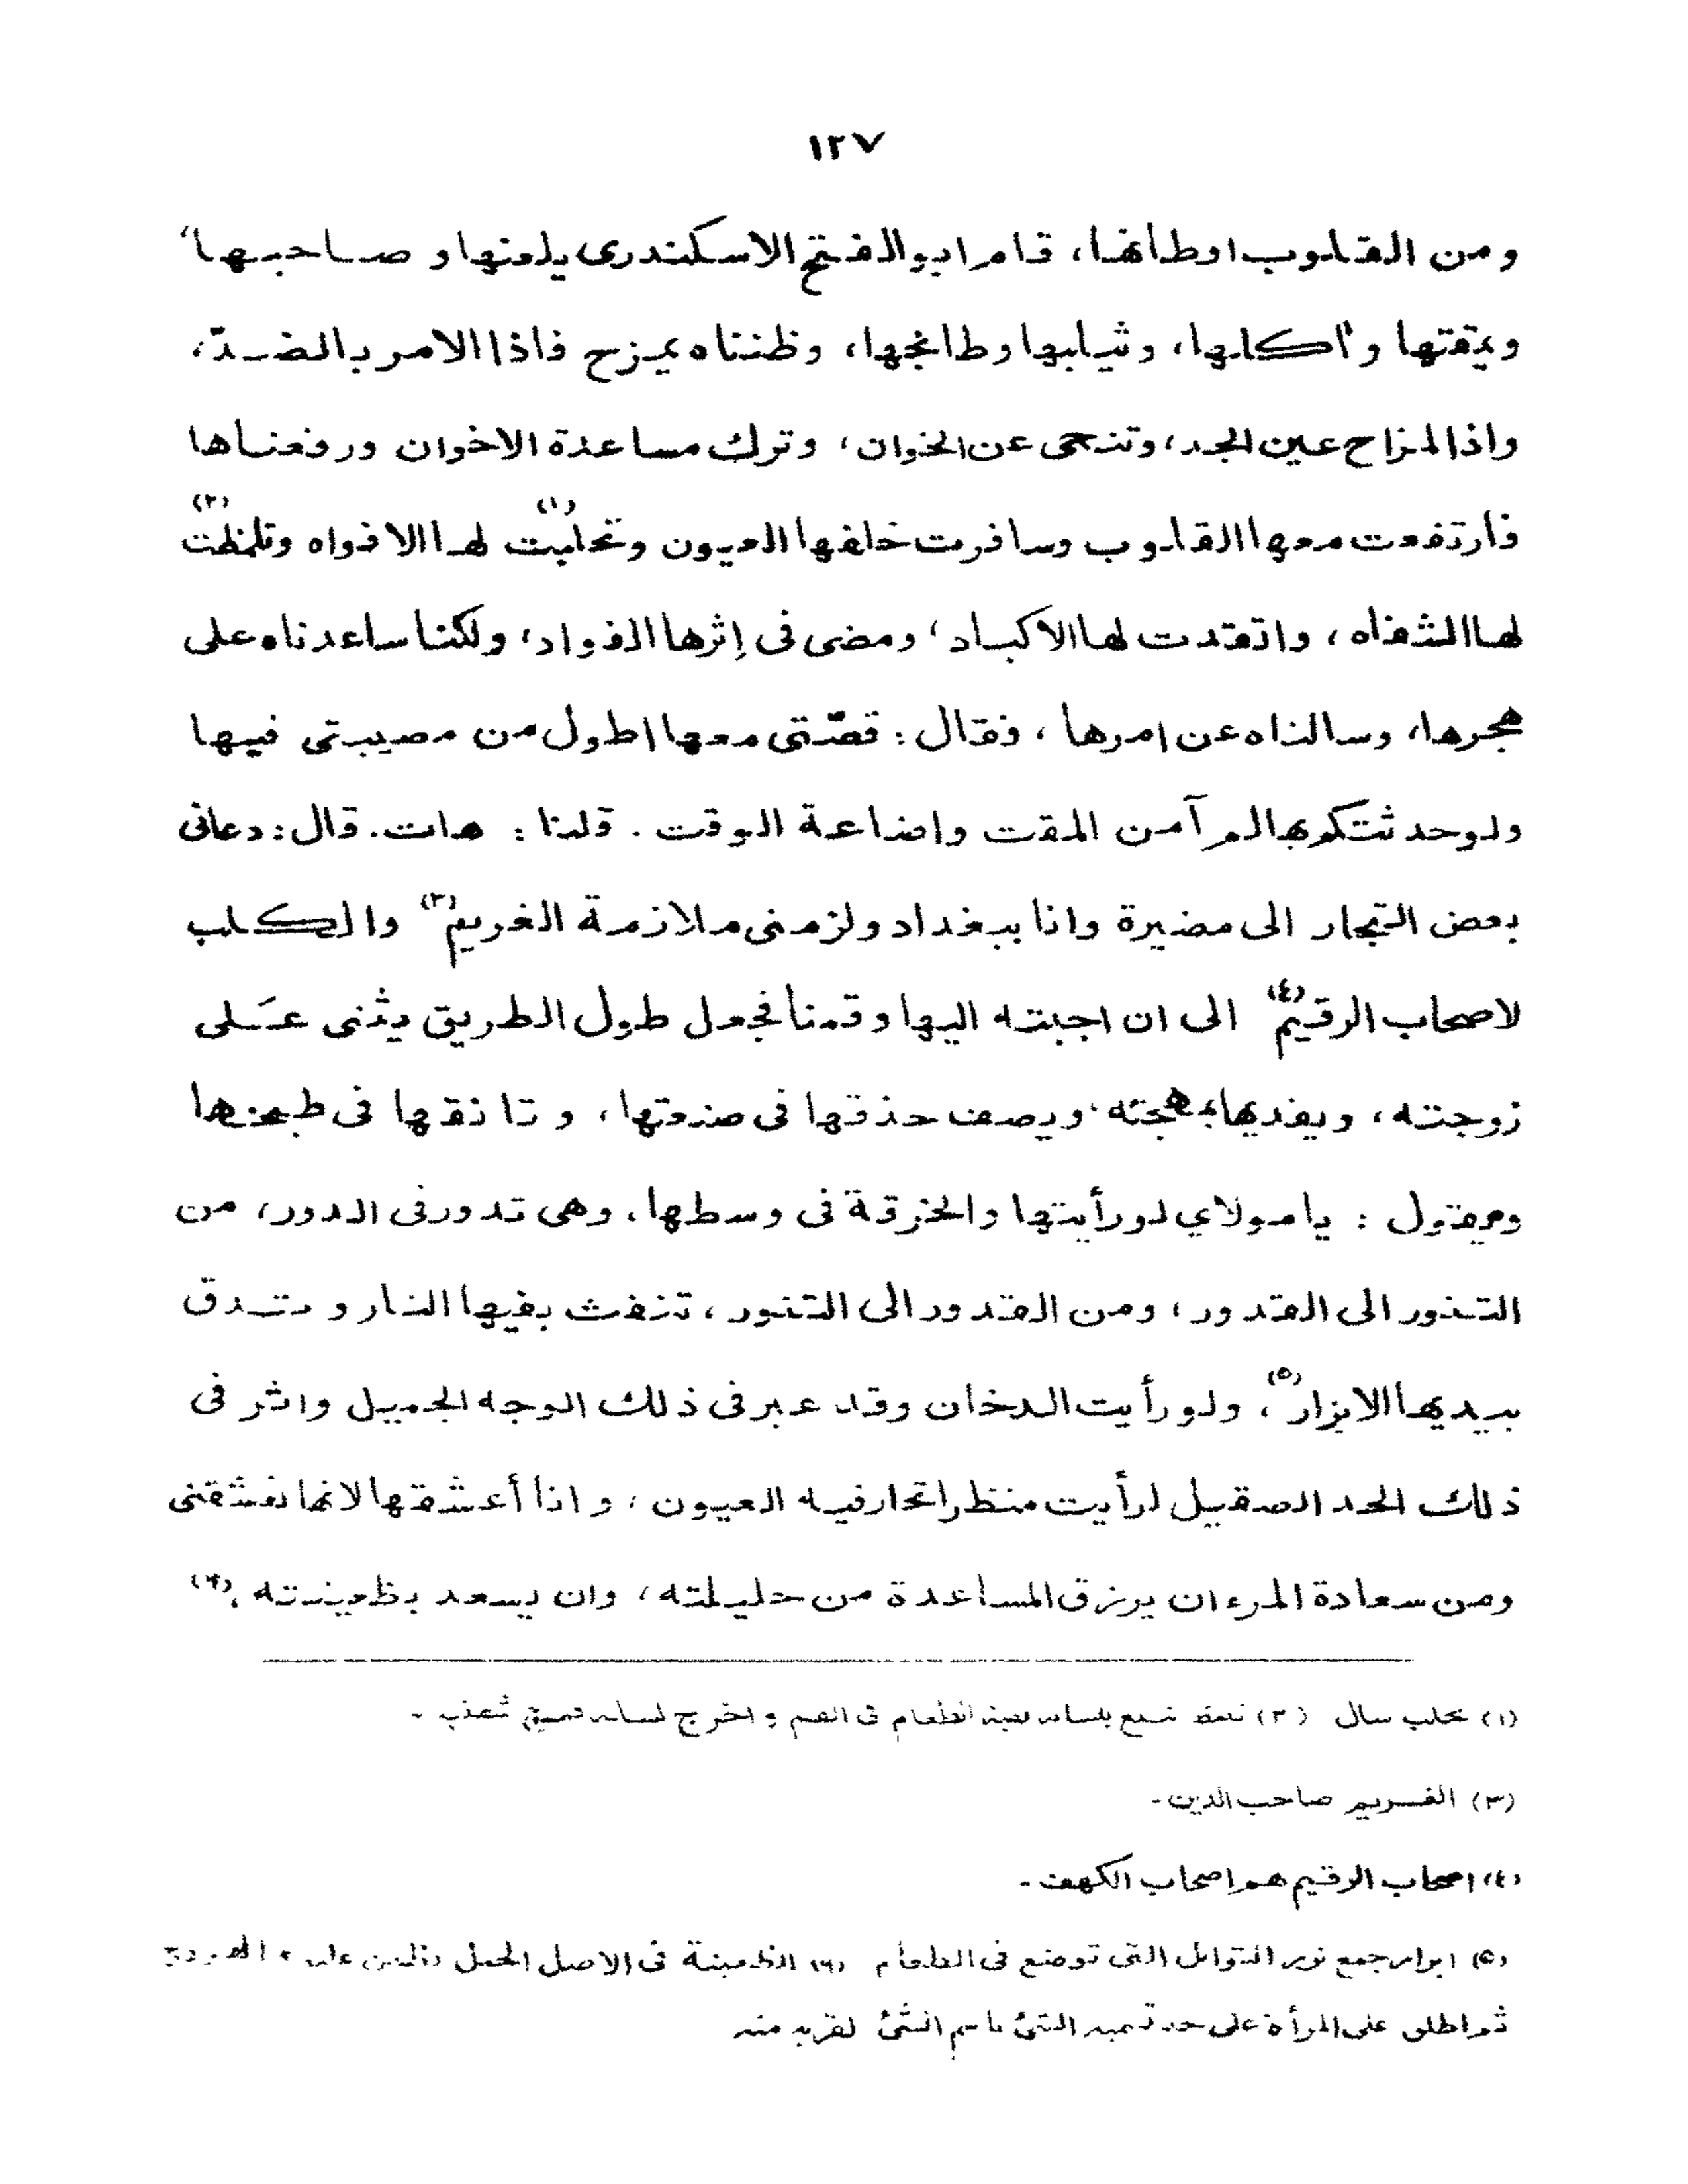 ١٢٧
ومن القلوب اوطانها، قام ابو الفتح الاسكندرى يلعنها و صاحبها،
ويمقتها وآكلها، وثيلبها وطابخها، وظنناه يمزح فاذا الامر بالضدّ،
واذا المزاح عين الجد، وتنحى عن الخوان، وترك مساعدة الاخوان ورفعناها
فارتفعت معها القلوب وسافرت خلفها العيون وتحلبت (١) لها الافواه وتلمظت (٢)
لها الشفاه، واتقدت لها الاكباد، ومضى فى إثرها الفواد، ولكنا ساعدناه على
هجرها، وسالناه عن امرها، فقال : قصّتى معها اطول من مصيبتى فيها
ولوحد ثتكم بها لم آمن المقت واضاعة الوقت. قلنا : هات. قال : دعانى
بعض التجار الى مضيرة وانا ببغداد ولزمنى ملازمة الغريم (٣) والكلب
لاصحاب الرقيم (٤) الى ان اجبته اليها وقمنا فجعل طول الطريق يثنى عَلى
زوجته، ويفديها بمهجته، ويصف حذقها فى صنعتها، وتانقها فى طبخها
ويقول : يامولاي لورأيتها والخرقة فى وسطها، وهى تدورفى الدور، من
التنور الى القدور، ومن القدور الى التنور، تنفث بفيها النار وتدق
بيديها الابزار (٥)، ولو رأيت الدخان وقد عبر فى ذلك الوجه الجميل واثر فى
ذلك الخد الصقيل لرأيت منظرا تحارفيه العيون، وانا أعشقها لانها تعشقنى
ومن سعادة المرء ان يرزق المساعدة من حليلته، وان يسعد بظعينته، (٦)
(١) تحلب سال (٢) تلمظ تتبع بلسانه بقية الطعام فى الفم و اخرج لسانه فمسح شفتيه ۔
(٣) الغريم صاحب الدين ۔
(٤) اصحاب الرقيم هم اصحاب الكهف ۔
(٥) ابزار جمع بزر التوابل التى توضع فى الطعام (٦) الظعينة فى الاصل الجمل الهودج
ثم اطلق على المرأة على حد تسمية الشئ باسم الشئ لقربه منه